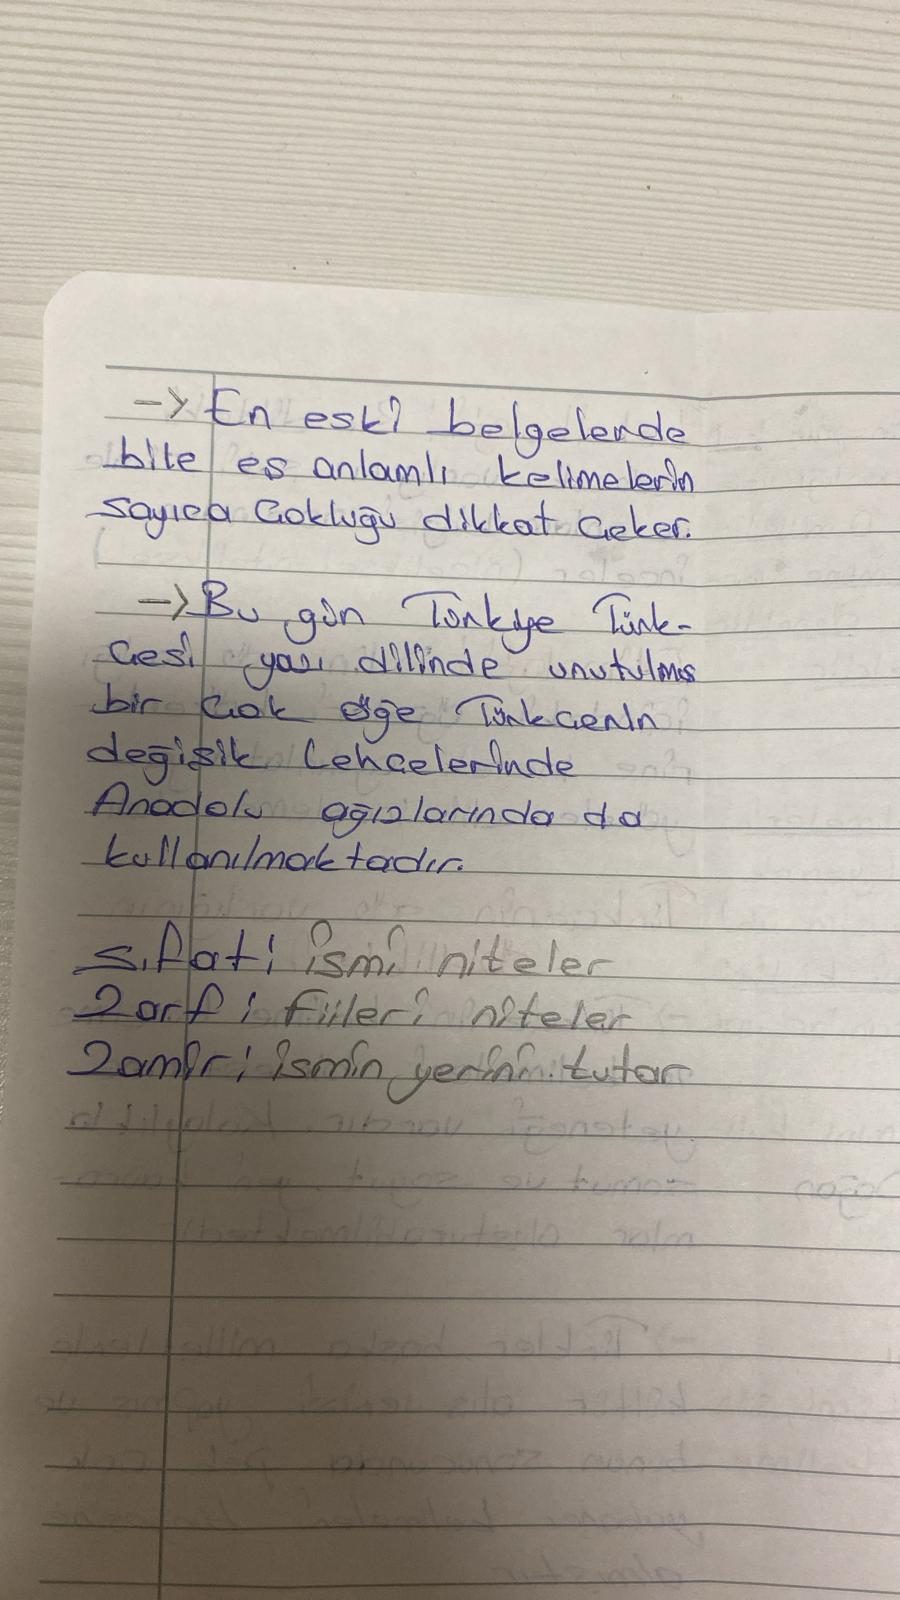 -> En eski belgelerde
bile es anlamlı kelimelerin
sayıca Çokluğu dikkat Çeker.
-> Bu gün Türkiye Türk-
Çesi yazı dilinde unutulmıs
bir Çok öğe Türkçenin
değişik Lehçelerinde
Anadolu ağızlarında da
kullanılmaktadır.
Sıfat: ismi niteler
Zarf: fiileri niteler
Zamir: ismin yerini tutar